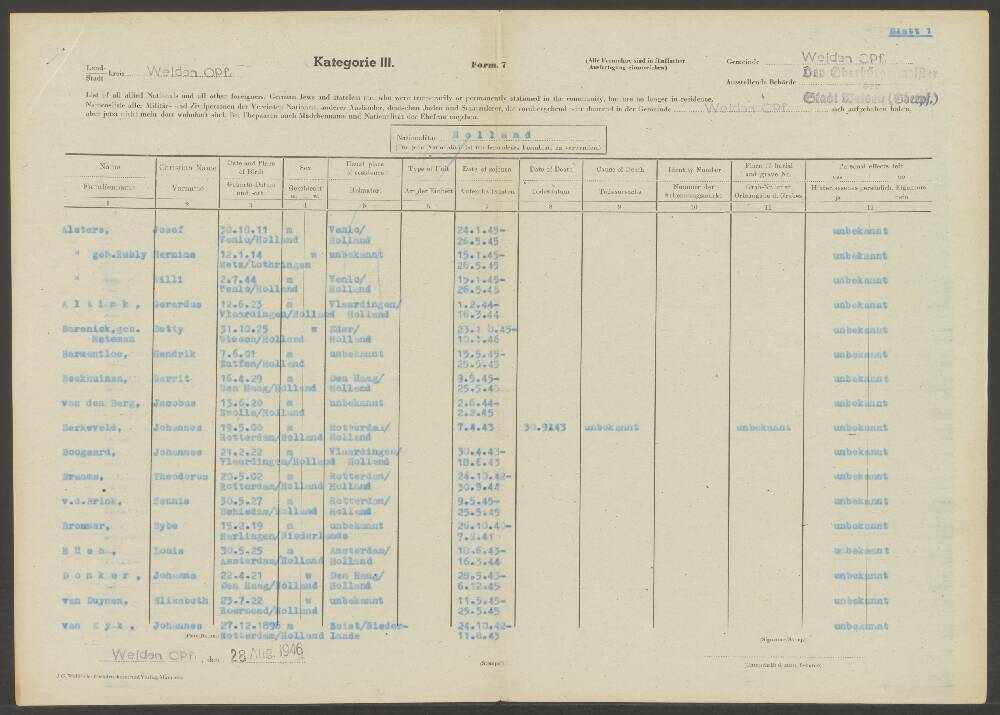 Blatt 1
Land-
Stadt kreis Weiden OPf.
Kategorie III.
Form. 7
(Alle Fremden sind in
Ausfertigung einzureichen)
Gemeinde Weiden OPf.
Ausstellende Behörde Der Oberbürgermeister
Stadt Weiden (Oberpf.)
List of all allied Nationals and all other foreigners, German Jews and stateless etc. who were temporarily or permanently stationed in the community, but are no longer in residence.
Namensliste aller Militär- und Zivilpersonen der Vereinten Nationen, anderer Ausländer, deutschen Juden und Staatenloser, die vorübergehend oder dauernd in der Gemeinde Weiden OPf. sich aufgehalten haben,
aber jetzt nicht mehr dort wohnhaft sind. Bei Ehepaaren auch Mädchenname und Nationalität der Ehefrau angeben.
Nationalität Holland
(Für jede Nationalität ist ein besonderes Formblatt zu verwenden)
Name Christian Name Date and Place of Birth Sex Usual place of residence Type of Unit Date of sojourn Date of Death Cause of Death Identity Number Place of burial and grave No. Personal effects left yes no
Familienname Vorname Geburts-Datum und -ort Geschlecht m. w. Heimatort Art der Einheit Aufenthaltsdaten Todesdatum Todesursache Nummer der Erkennungsmarke Grab-Nr. oder Ortsangabe d. Grabes Hinterlassenes persönlich. Eigentum ja nein
1 2 3 4 5 6 7 8 9 10 11 12
Alsters, Josef 30.10.11 m Venlo/ 24.1.45- unbekannt
Venlo/Holland Holland 26.5.45
" geb.Rubly Hermine 12.1.14 w unbekannt 15.1.45- unbekannt
Metz/Lothringen 26.5.45
" Willi 2.7.44 m Venlo/ 15.1.45- unbekannt
Venlo/Holland Holland 26.5.45
Altink, Gerardus 12.6.23 m Vlaardingen/ 1.2.44- unbekannt
Vlaardingen/Holland Holland 16.3.44
Barenick,geb. Betty 31.10.25 w Eder/ 45- unbekannt
Holland Holland 10.1.46
Hendrik 7.6.01 m unbekannt 15.5.45- unbekannt
Zutfen/Holland 25.5.45
Beekhuizen, Gerrit 16.4.29 m Den Haag/ 9.5.45- unbekannt
Den Haag/Holland Holland 25.5.45
van den Berg, Jacobus 13.6.20 m unbekannt 2.6.44- unbekannt
Zwolle/Holland 2.2.45
Berkeveld, Johannes 19.5.00 m Rotterdam/ 7.4.43 30.9143 unbekannt unbekannt unbekannt
Rotterdam/Holland Holland
Boogaard, Johannes 21.2.22 m Vlaardingen/ 30.4.43- unbekannt
Vlaardingen/Holland Holland 18.6.43
Theodorus 20.5.02 m Rotterdam/ 24.10.42- unbekannt
Rotterdam/Holland Holland 30.9.44
v.d.Brink, Tennis 30.5.27 m Rotterdam/ 9.5.45- unbekannt
Schiedam/Holland Holland 25.5.45
Brouwer, Sybe 15.2.19 m unbekannt 26.10.40- unbekannt
Harlingen/Niederlande 7.2.41
Büch, Louis 30.5.25 m Amsterdam/ 18.6.43- unbekannt
Amsterdam/Holland Holland 16.3.44
Donker, Johanna 22.4.21 w Den Haag/ 28.5.43- unbekannt
Den Haag/Holland Holland 6.12.45
van Duynen, Elisabeth 23.7.22 w unbekannt 11.5.45- unbekannt
Roermond/Holland 25.5.45
van Eyk, Johannes 27.12.1896 m Zeist/Nieder- 24.10.42- unbekannt
Rotterdam/Holland lande 11.8.43
Weiden OPf., den 28 Aug. 1946
(Stempel)
(Signature/Stamp)